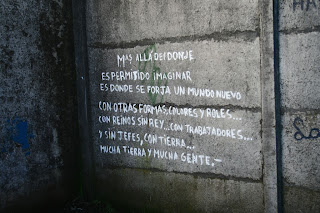 MAS ALLÁ DE DONDE
ES PERMITIDO IMAGINAR
ES DONDE SE FORJA UN MUNDO NUEVO
CON OTRAS FORMAS, COLORES Y ROLES...
CON REINOS SIN REY... CON TRABAJADORES...
Y SIN JEFES, CON TIERRA...
MUCHA TIERRA Y MUCHA GENTE.-